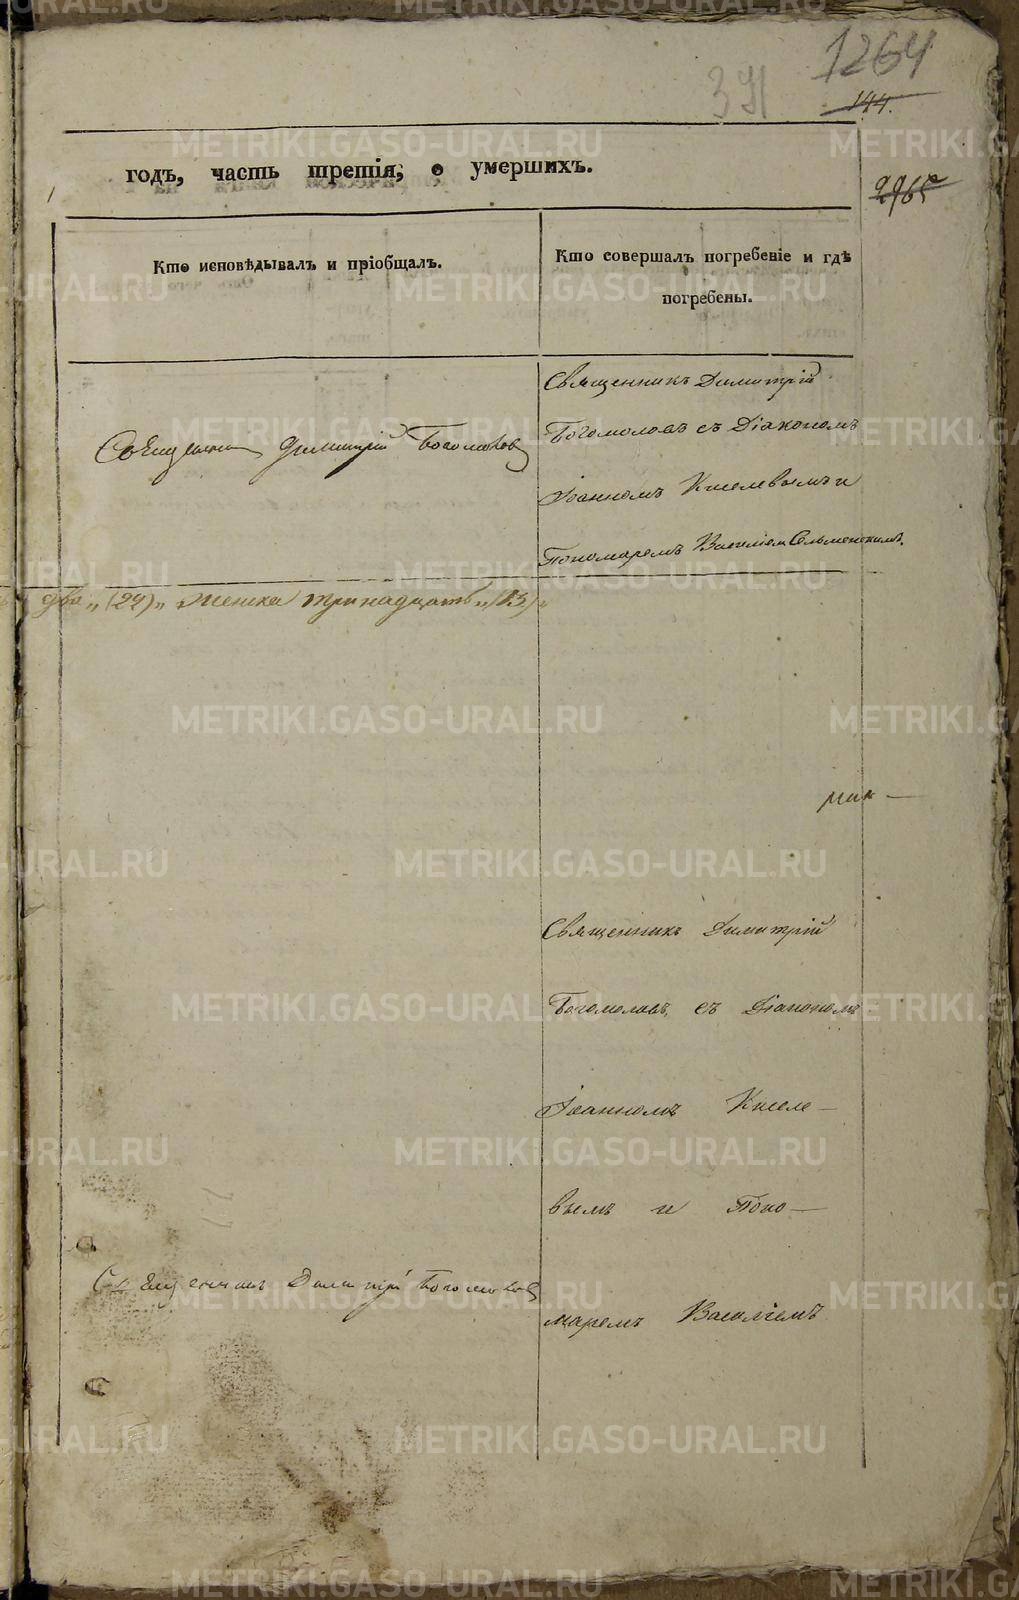 1264
391
144.
годъ, часть третія, о умершихъ.
2965
Кто исповѣдывалъ и пріобщалъ.
Кто совершалъ погребеніе и гдѣ
погребены.
Священникъ Димитрій
Богомоловъ съ Діакономъ
Іоанномъ Киселевымъ и
Пономаремъ Василіем Сельменскимъ.
Священникъ Димитрій Богомоловъ
два „ (22) „ женска тринадцать „ (13) „
Священникъ Димитрій
Богомоловъ, съ Діакономъ
Іоанномъ Киселе–
вымъ и Поно–
маремъ Василіемъ
Священникъ Димитрій Богомоловъ
METRIKI.GASO-URAL.RU